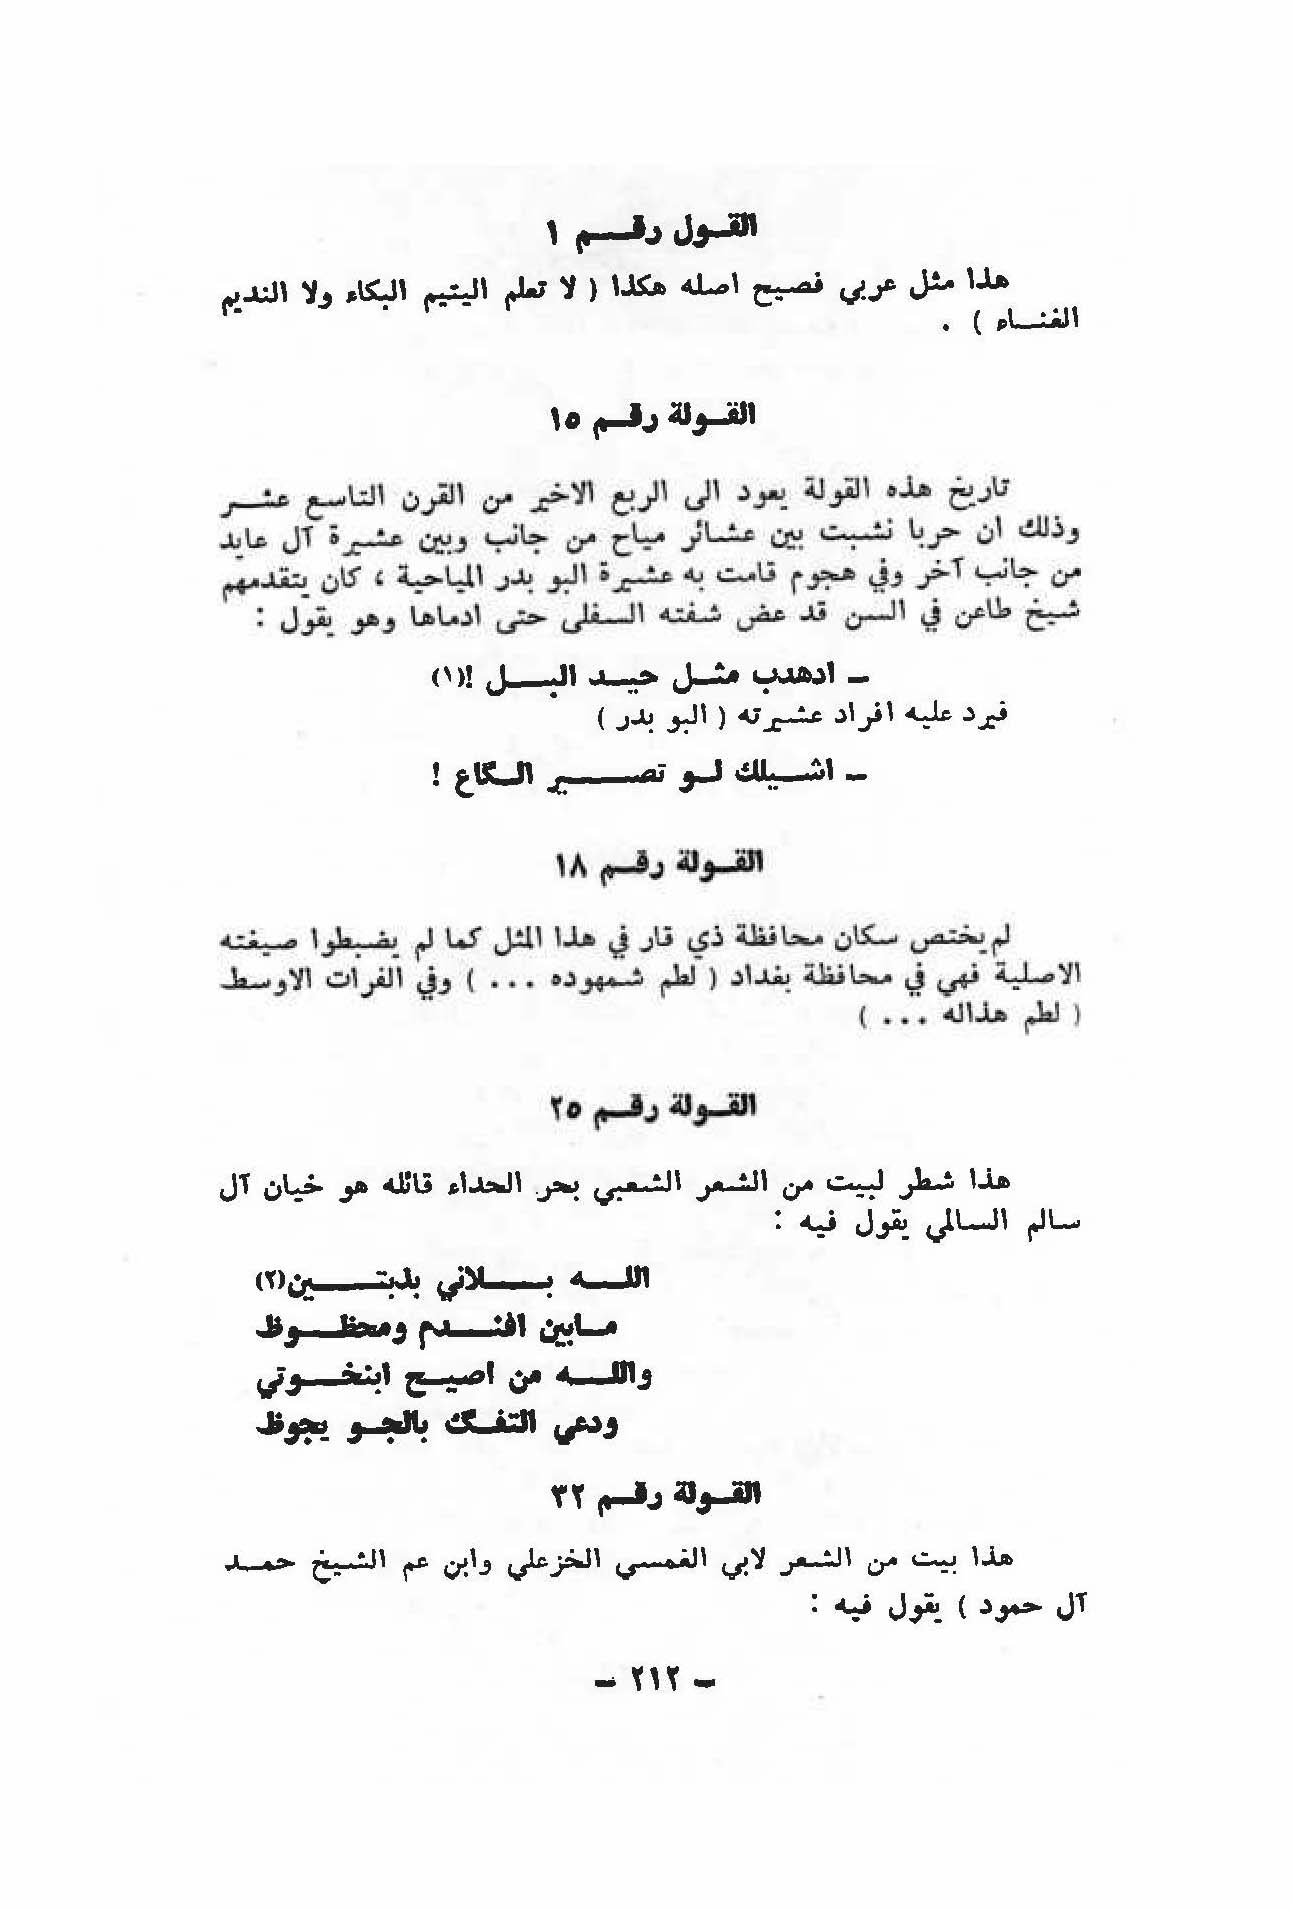 القول رقم ١
هذا مثل عربي فصيح اصله هكذا ( لا تعلم اليتيم البكاء ولا النديم
الغناء ) .
القولة رقم ١٥
تاريخ هذه القولة يعود الى الربع الاخير من القرن التاسع عشر
وذلك ان حربا نشبت بين عشائر مياح من جانب وبين عشيرة آل عايد
من جانب آخر وفي هجوم قامت به عشيرة البو بدر المياحية ، كان يتقدمهم
شيخ طاعن في السن قد عض شفته السفلى حتى ادماها وهو يقول :
ـ ادهدب مثل حيد البل !(١)
فيرد عليه افراد عشيرته ( البو بدر )
ـ اشيلك لو تصير الگاع !
القولة رقم ١٨
لم يختص سكان محافظة ذي قار في هذا المثل كما لم يضبطوا صيغته
الاصلية فهي في محافظة بغداد ( لطم شمهوده ... ) وفي الفرات الاوسط
( لطم هذاله ... )
القولة رقم ٢٥
هذا شطر لبيت من الشعر الشعبي بحر الحداء قائله هو خيان آل
سالم السالمي يقول فيه :
الله بلاني بذبتين(٢)
مابين افندم ومحظوظ
والله من اصيح ابنخوتي
ودعي التفگ بالجو يجوظ
القولة رقم ٣٢
هذا بيت من الشعر لابي الغمسي الخزعلي وابن عم الشيخ حمد
آل حمود ) يقول فيه :
ـ ٢١٢ ـ